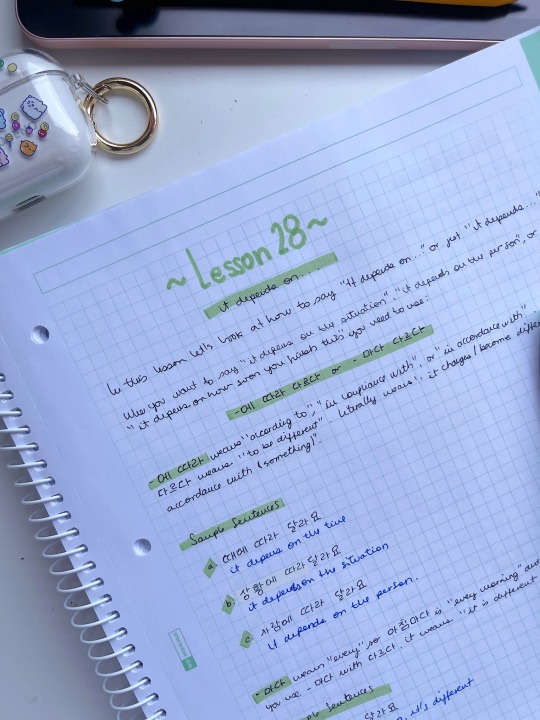 ~ Lesson 28 ~
it depends on.....
In this lesson let's look at how to say "It depends on..." or just "it depends..."
When you want to say "it depens on the situation". "it depends on the person", or
"it depens on how soon you finish this" you need to use:
-에 따라 다르다 or - 마다 다르다
-에 따라 means "according to", "in compliance with", or "in accordance with"
다르다 means "to be different" - literally means: it changes/become differe
accordance with (something)".
Sample Sentences
a. 때에 따라 달라요
it depens on the time
b. 상황에 따라 달라요
it depends on the situation
c. 사람에 따라 달라요
it depends on the person.
- 마다 means "every" so 아침마다 is "every morning" and
you use - 마다 with 다르다. it means "it is different
Sentences
달라요 it's different